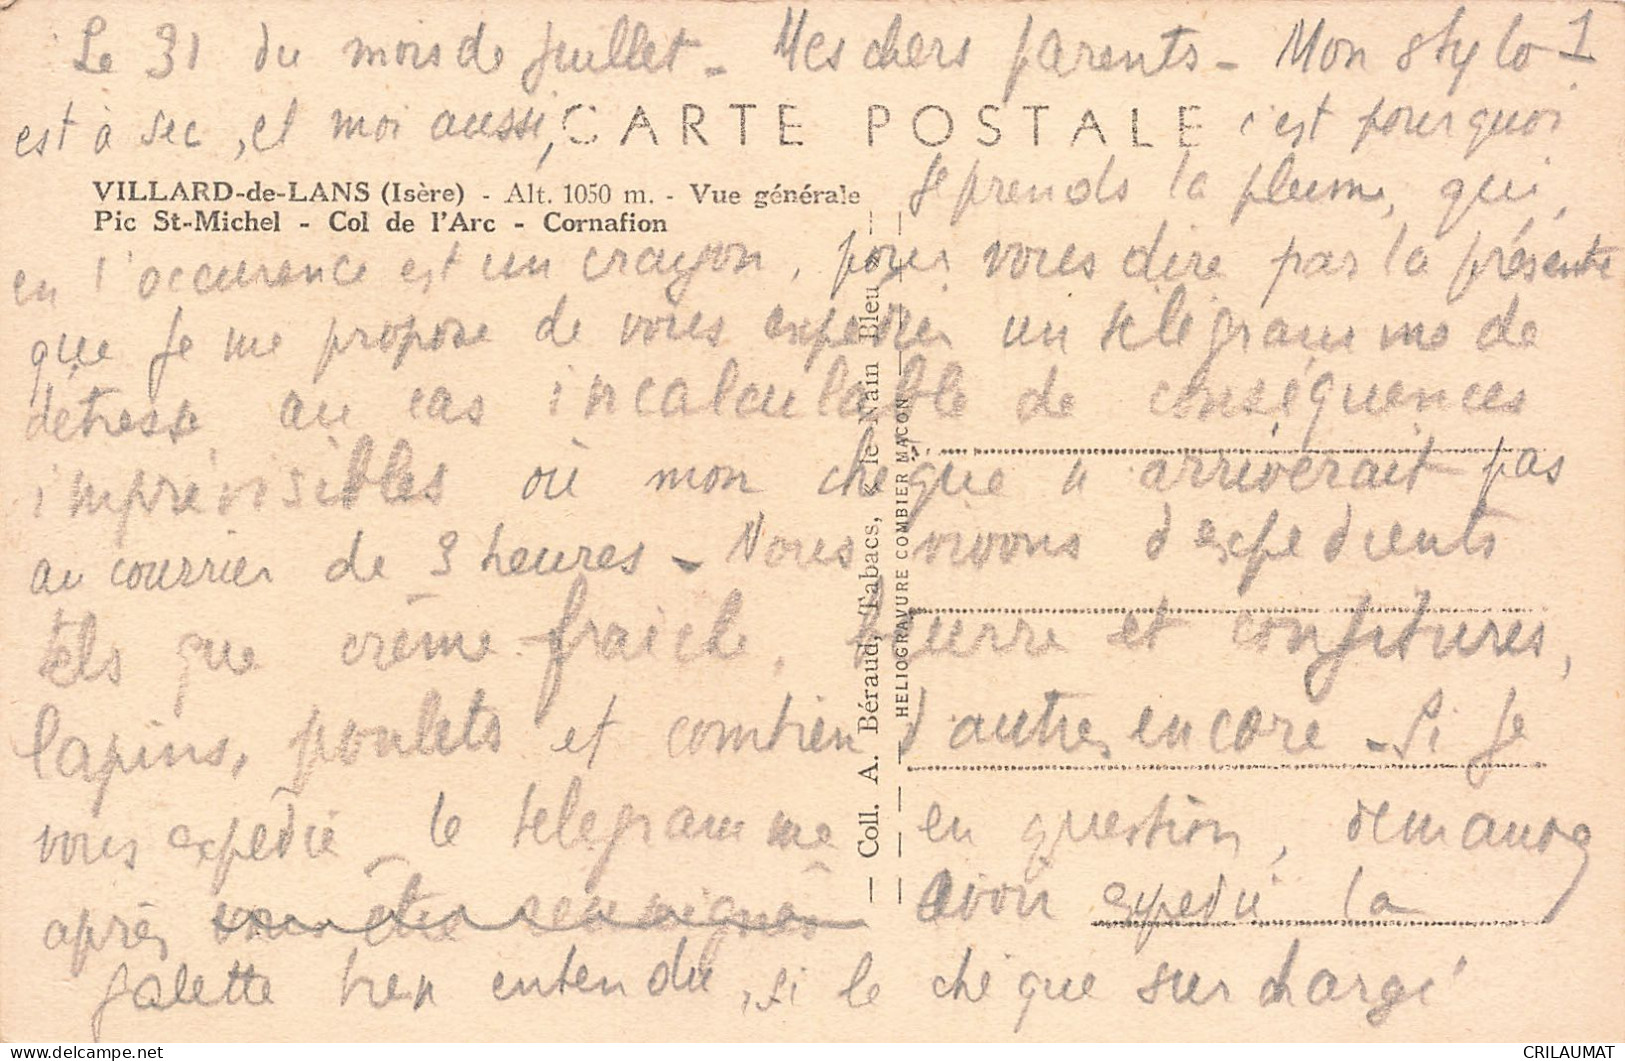 Le 31 du mois de Juillet - Mes chers parents - Mon stylo 1
est à sec, et moi aussi,
CARTE POSTALE
c'est pourquoi
VILLARD-de-LANS (Isère) - Alt. 1050 m. - Vue générale
Pic St-Michel - Col de l'Arc - Cornafion
Je prends la plume, qui,
en l'occurence est un crayon, pour vous dire par la présente
que Je me propose de vous expédier un télégramme de
détresse au cas incalculable de conséquences
imprévisibles où mon chèque n'arriverait pas
au courrier de 3 heures - Nous vivons d'expedients
tels que crème fraiche, beurre et confitures,
lapins, poulets et combien d'autres encore - Si Je
vous expédie le télégramme en question, demandez
après vous être renseignés avoir expédié la
galette bien entendu, si le chèque surchargé
— Coll. A. Béraud, Tabacs, « le Nain Bleu » —
HELIOGRAVURE COMBIER MACON
CRILAUMAT